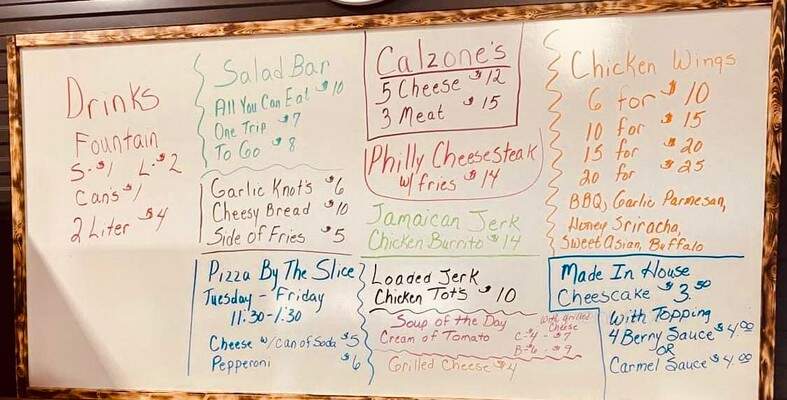 Drinks
Fountain
S-$1 L-$2
Can's $1
2 Liter $4
Salad Bar
All You Can Eat $10
One Trip $7
To Go $8
Garlic Knot's $6
Cheesy Bread $10
Side of Fries $5
Pizza By The Slice
Tuesday - Friday
11:30-1:30
Cheese w/can of Soda $5
Pepperoni $6
Calzone's
5 Cheese $12
3 Meat $15
Philly Cheesesteak
w/ fries $14
Jamaican Jerk
Chicken Burrito $14
Loaded Jerk
Chicken Tot's $10
Soup of the Day
Cream of Tomato
With grilled
Cheese
C-4 - $7
B-6 - $9
Grilled Cheese $4
Chicken Wings
6 for $10
10 for $15
15 for $20
20 for $25
BBQ, Garlic Parmesan,
Honey Sriracha,
Sweet Asian, Buffalo
Made In House
Cheescake $3.50
With Topping
4 Berry Sauce $4.00
OR
Carmel Sauce $4.00